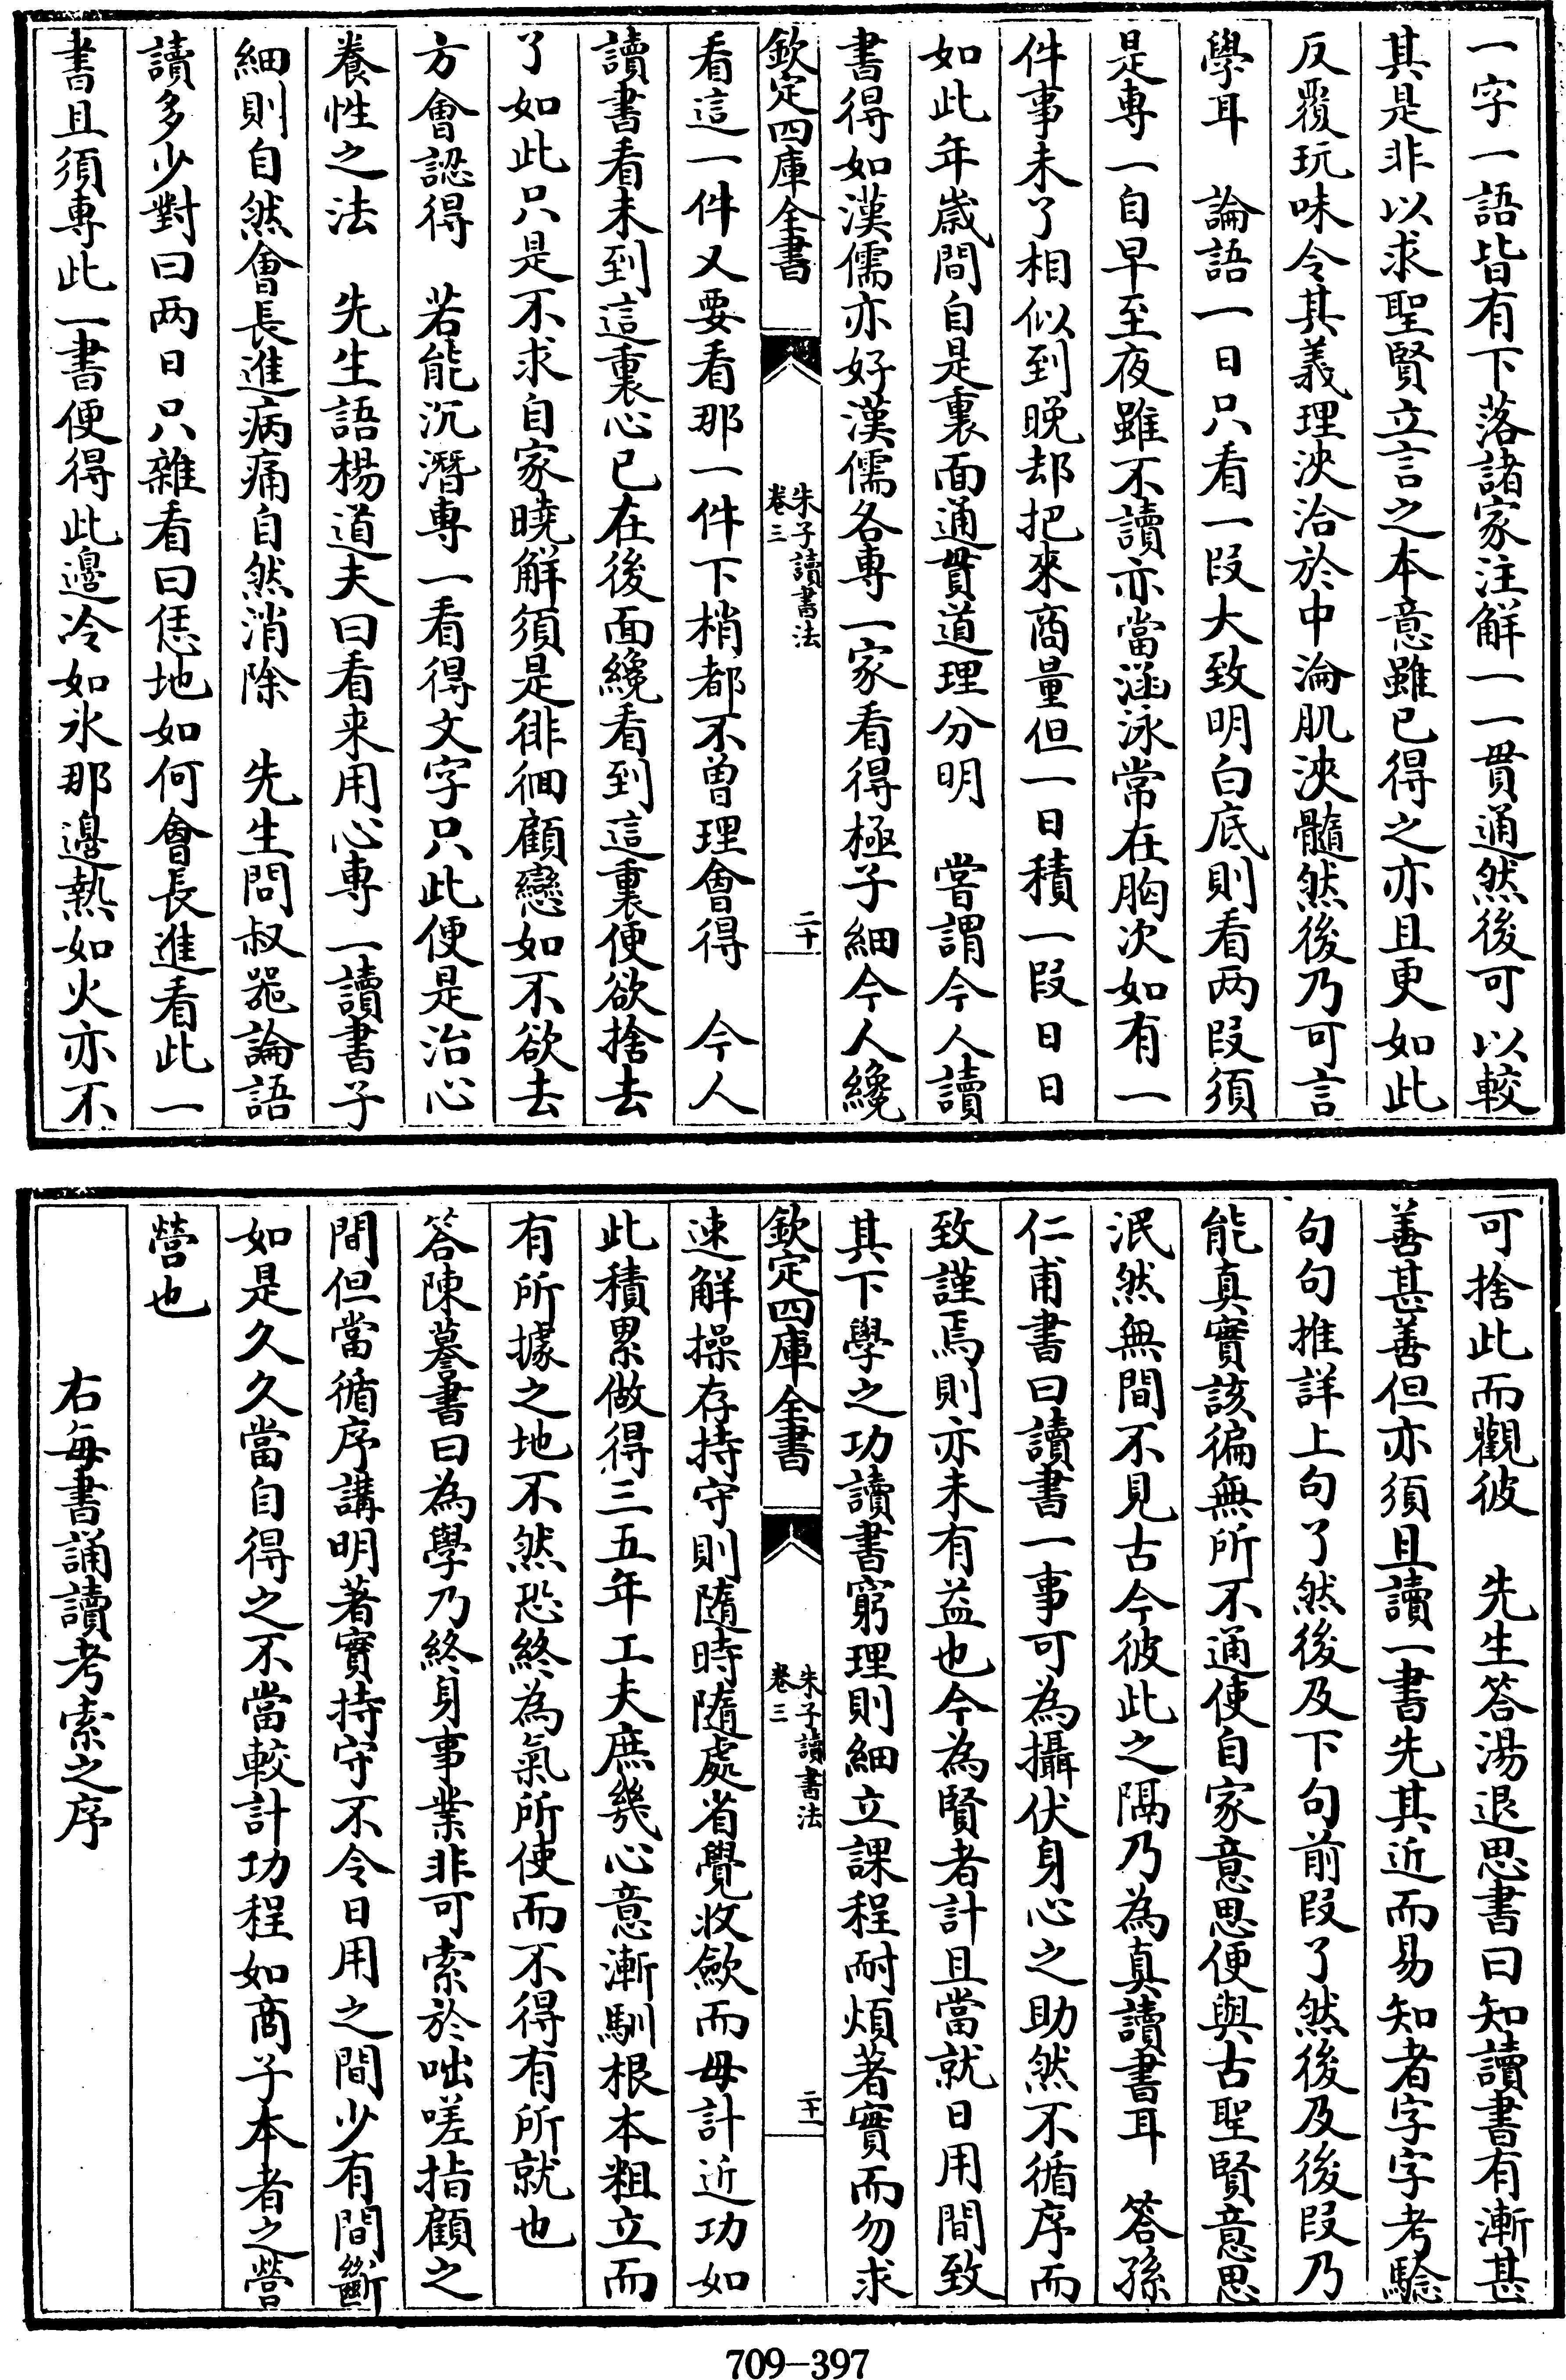 一字一語皆有下落諸家注解一一貫通然後可以較
其是非以求聖賢立言之本意雖已得之亦且更如此
反覆玩味令其義理浹洽於中淪肌浹髓然後乃可言
學耳　論語一日只看一段大致明白底則看兩段須
是專一自早至夜雖不讀亦當涵泳常在胸次如有一
件事未了相似到晚却把來商量但一日積一段日日
如此年歲間自是裏面通貫道理分明　嘗謂今人讀
書得如漢儒亦好漢儒各專一家看得極子細今人纔
欽定四庫全書
朱子讀書法
卷三
二十
看這一件又要看那一件下梢都不曾理會得　今人
讀書看未到這裏心已在後面纔看到這裏便欲捨去
了如此只是不求自家曉解須是徘徊顧戀如不欲去
方會認得　若能沉潛專一看得文字只此便是治心
養性之法　先生語楊道夫曰看来用心專一讀書子
細則自然會長進病痛自然消除　先生問叔器論語
讀多少對曰兩日只雜看曰恁地如何會長進看此一
書且須專此一書便得此邊冷如氷那邊熱如火亦不
可捨此而觀彼　先生答湯退思書曰知讀書有漸甚
善甚善但亦須且讀一書先其近而易知者字字考驗
句句推詳上句了然後及下句前段了然後及後段乃
能真實該徧無所不通使自家意思便與古聖賢意思
泯然無間不見古今彼此之隔乃為真讀書耳　答孫
仁甫書曰讀書一事可為攝伏身心之助然不循序而
致謹焉則亦未有益也今為賢者計且當就日用間致
其下學之功讀書窮理則細立課程耐煩著實而勿求
欽定四庫全書
朱子讀書法
卷三
二十一
速解操存持守則隨時隨處省覺收斂而毋計近功如
此積累做得三五年工夫庶幾心意漸馴根本粗立而
有所據之地不然恐終為氣所使而不得有所就也
答陳蓦書曰為學乃終身事業非可索於咄嗟指顧之
間但當循序講明著實持守不令日用之間少有間斷
如是久久當自得之不當較計功程如商子本者之營
營也
右每書誦讀考索之序
709-397